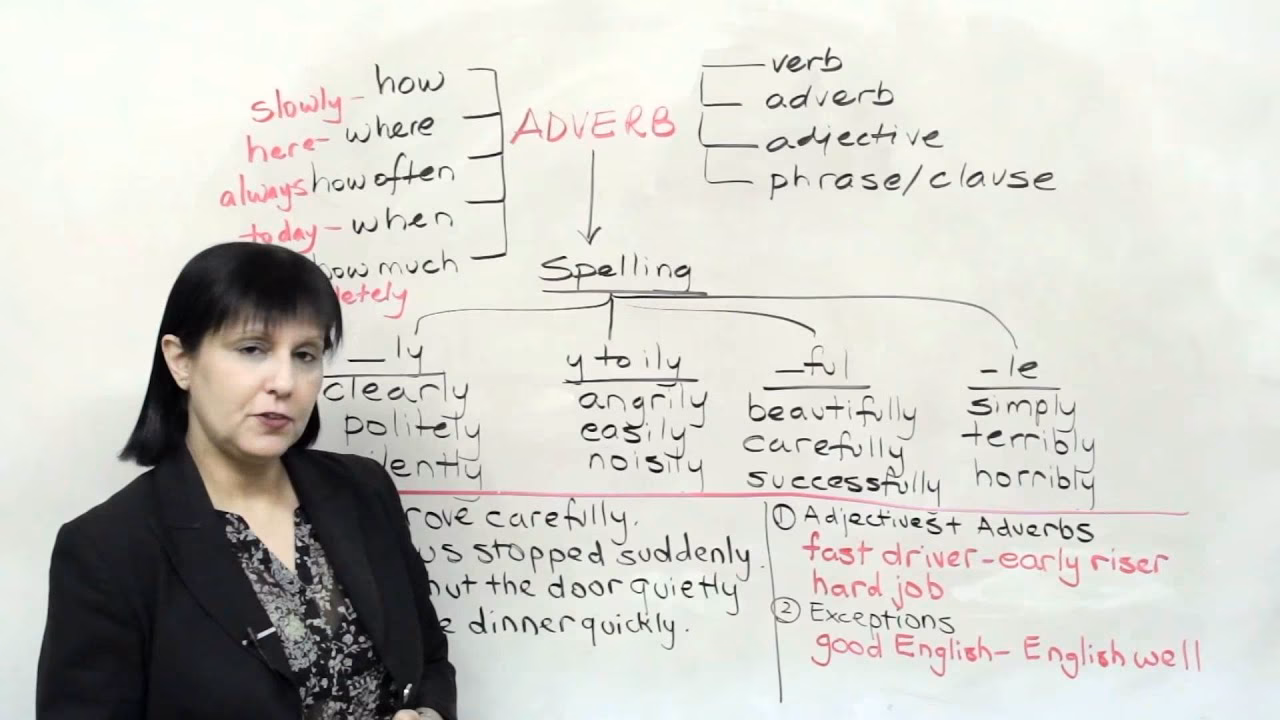 how
slowly-
where
here-
how often
always
when
today-
how much
letely
ADVERB
verb
adverb
adjective
phrase/clause
Spelling
_ly
clearly
politely
ilently
y to ily
angrily
easily
noisily
_ful
beautifully
carefully
successfully
-le
simply
terribly
horribly
rove carefully.
us stopped suddenly.
hut the door quietly
e dinner quickly.
① Adjectives + Adverbs
fast driver-early riser
hard job
② Exceptions
good English- English well